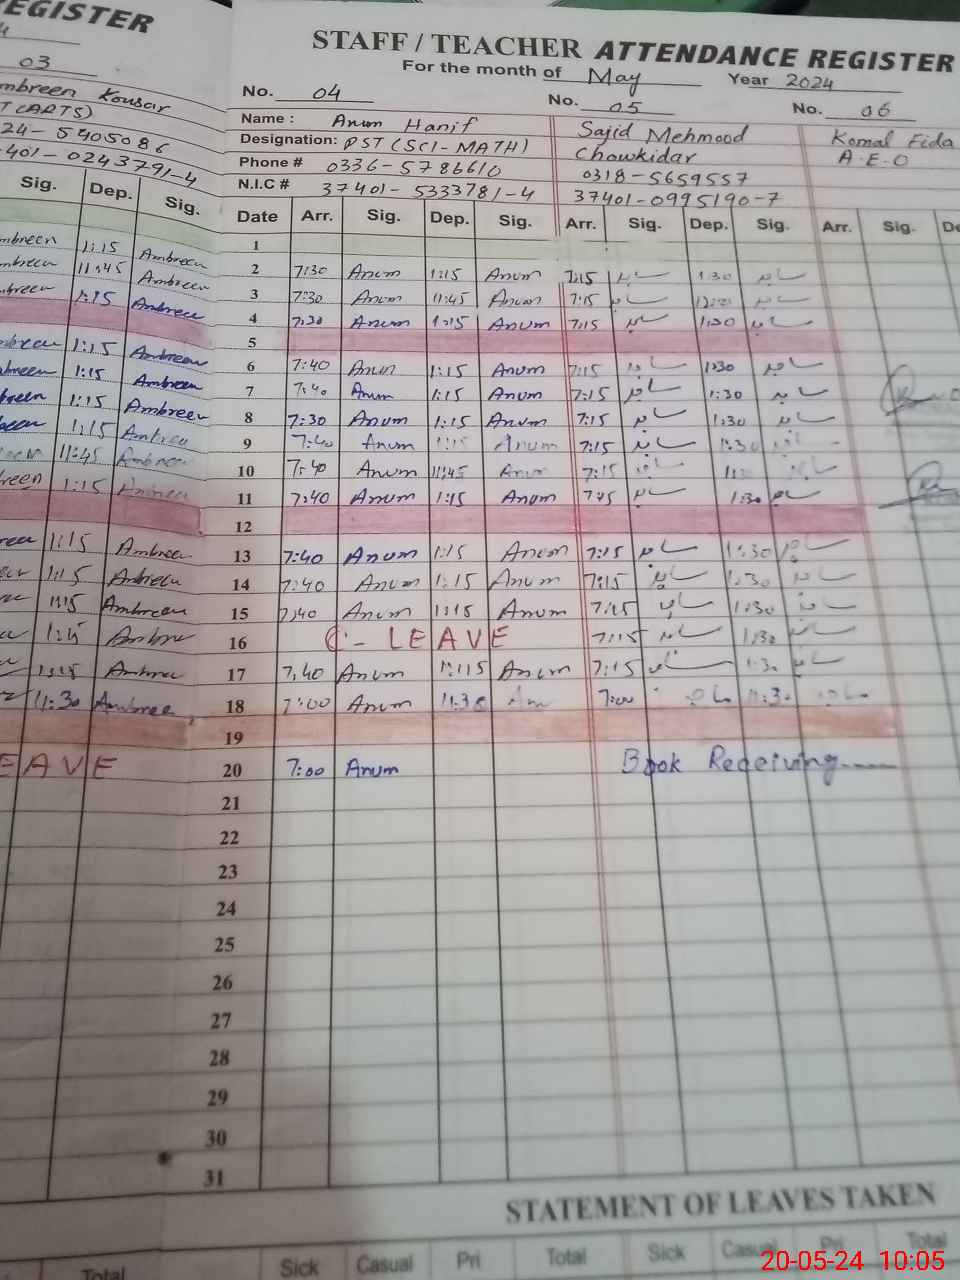 REGISTER
03
mbreen Kousar
T (ARTS)
24-5905086
401-0243791-4
Sig. Dep. Sig.
mbreen 1:15 Ambreen
mbreen 11:45 Ambreen
mbreen 1:15 Ambreen
mbreen 1:15 Ambreen
mbreen 1:15 Ambreen
breen 1:15 Ambreen
een 1:15 Ambreen
een 11:45 Ambreen
reen 1:15 Ambreen
reen 1:15 Ambreen
1:15 Ambreen
1:15 Ambreen
1:15 Ambree
1:15 Ambreen
11:30 Ambreen
EAVE
Total
STAFF / TEACHER ATTENDANCE REGISTER
For the month of May Year 2024
No. 04 No. 05 No. 06
Name : Anum Hanif Sajid Mehmood Komal Fida
Designation: PST (SCI-MATH) Chowkidar A.E.O
Phone # 0336-5786610 0318-5659557
N.I.C # 37401-5333781-4 37401-0995190-7
Date Arr. Sig. Dep. Sig. Arr. Sig. Dep. Sig. Arr. Sig. De
1
2 7:30 Anum 1:15 Anum 7:15 ساجد 1:30 ساجد
3 7:30 Anum 11:45 Anum 7:15 ساجد ساجد
4 7:30 Anum 1:15 Anum 7:15 ساجد 1:30 ساجد
5
6 7:40 Anum 1:15 Anum 7:15 ساجد 1:30 ساجد
7 7:40 Anum 1:15 Anum 7:15 ساجد 1:30 ساجد
8 7:30 Anum 1:15 Anum 7:15 ساجد 1:30 ساجد
9 7:40 Anum 1:15 Anum 7:15 ساجد 1:30 ساجد
10 7:40 Anum 11:45 Anum 7:15 ساجد ساجد
11 7:40 Anum 1:15 Anum 7:15 ساجد 1:30 ساجد
12
13 7:40 Anum 1:15 Anum 7:15 ساجد 1:30 ساجد
14 7:40 Anum 1:15 Anum 7:15 ساجد 1:30 ساجد
15 7:40 Anum 1:15 Anum 7:15 ساجد 1:30 ساجد
16 C-LEAVE 7:15 ساجد 1:30 ساجد
17 7:40 Anum 1:15 Anum 7:15 ساجد 1:30 ساجد
18 7:00 Anum 11:30 Anum 7:00 ساجد 11:30 ساجد
19
20 7:00 Anum Book Receiving......
21
22
23
24
25
26
27
28
29
30
31
STATEMENT OF LEAVES TAKEN
Sick Casual Pri Total Sick Casual Pri Total
20-05-24 10:05